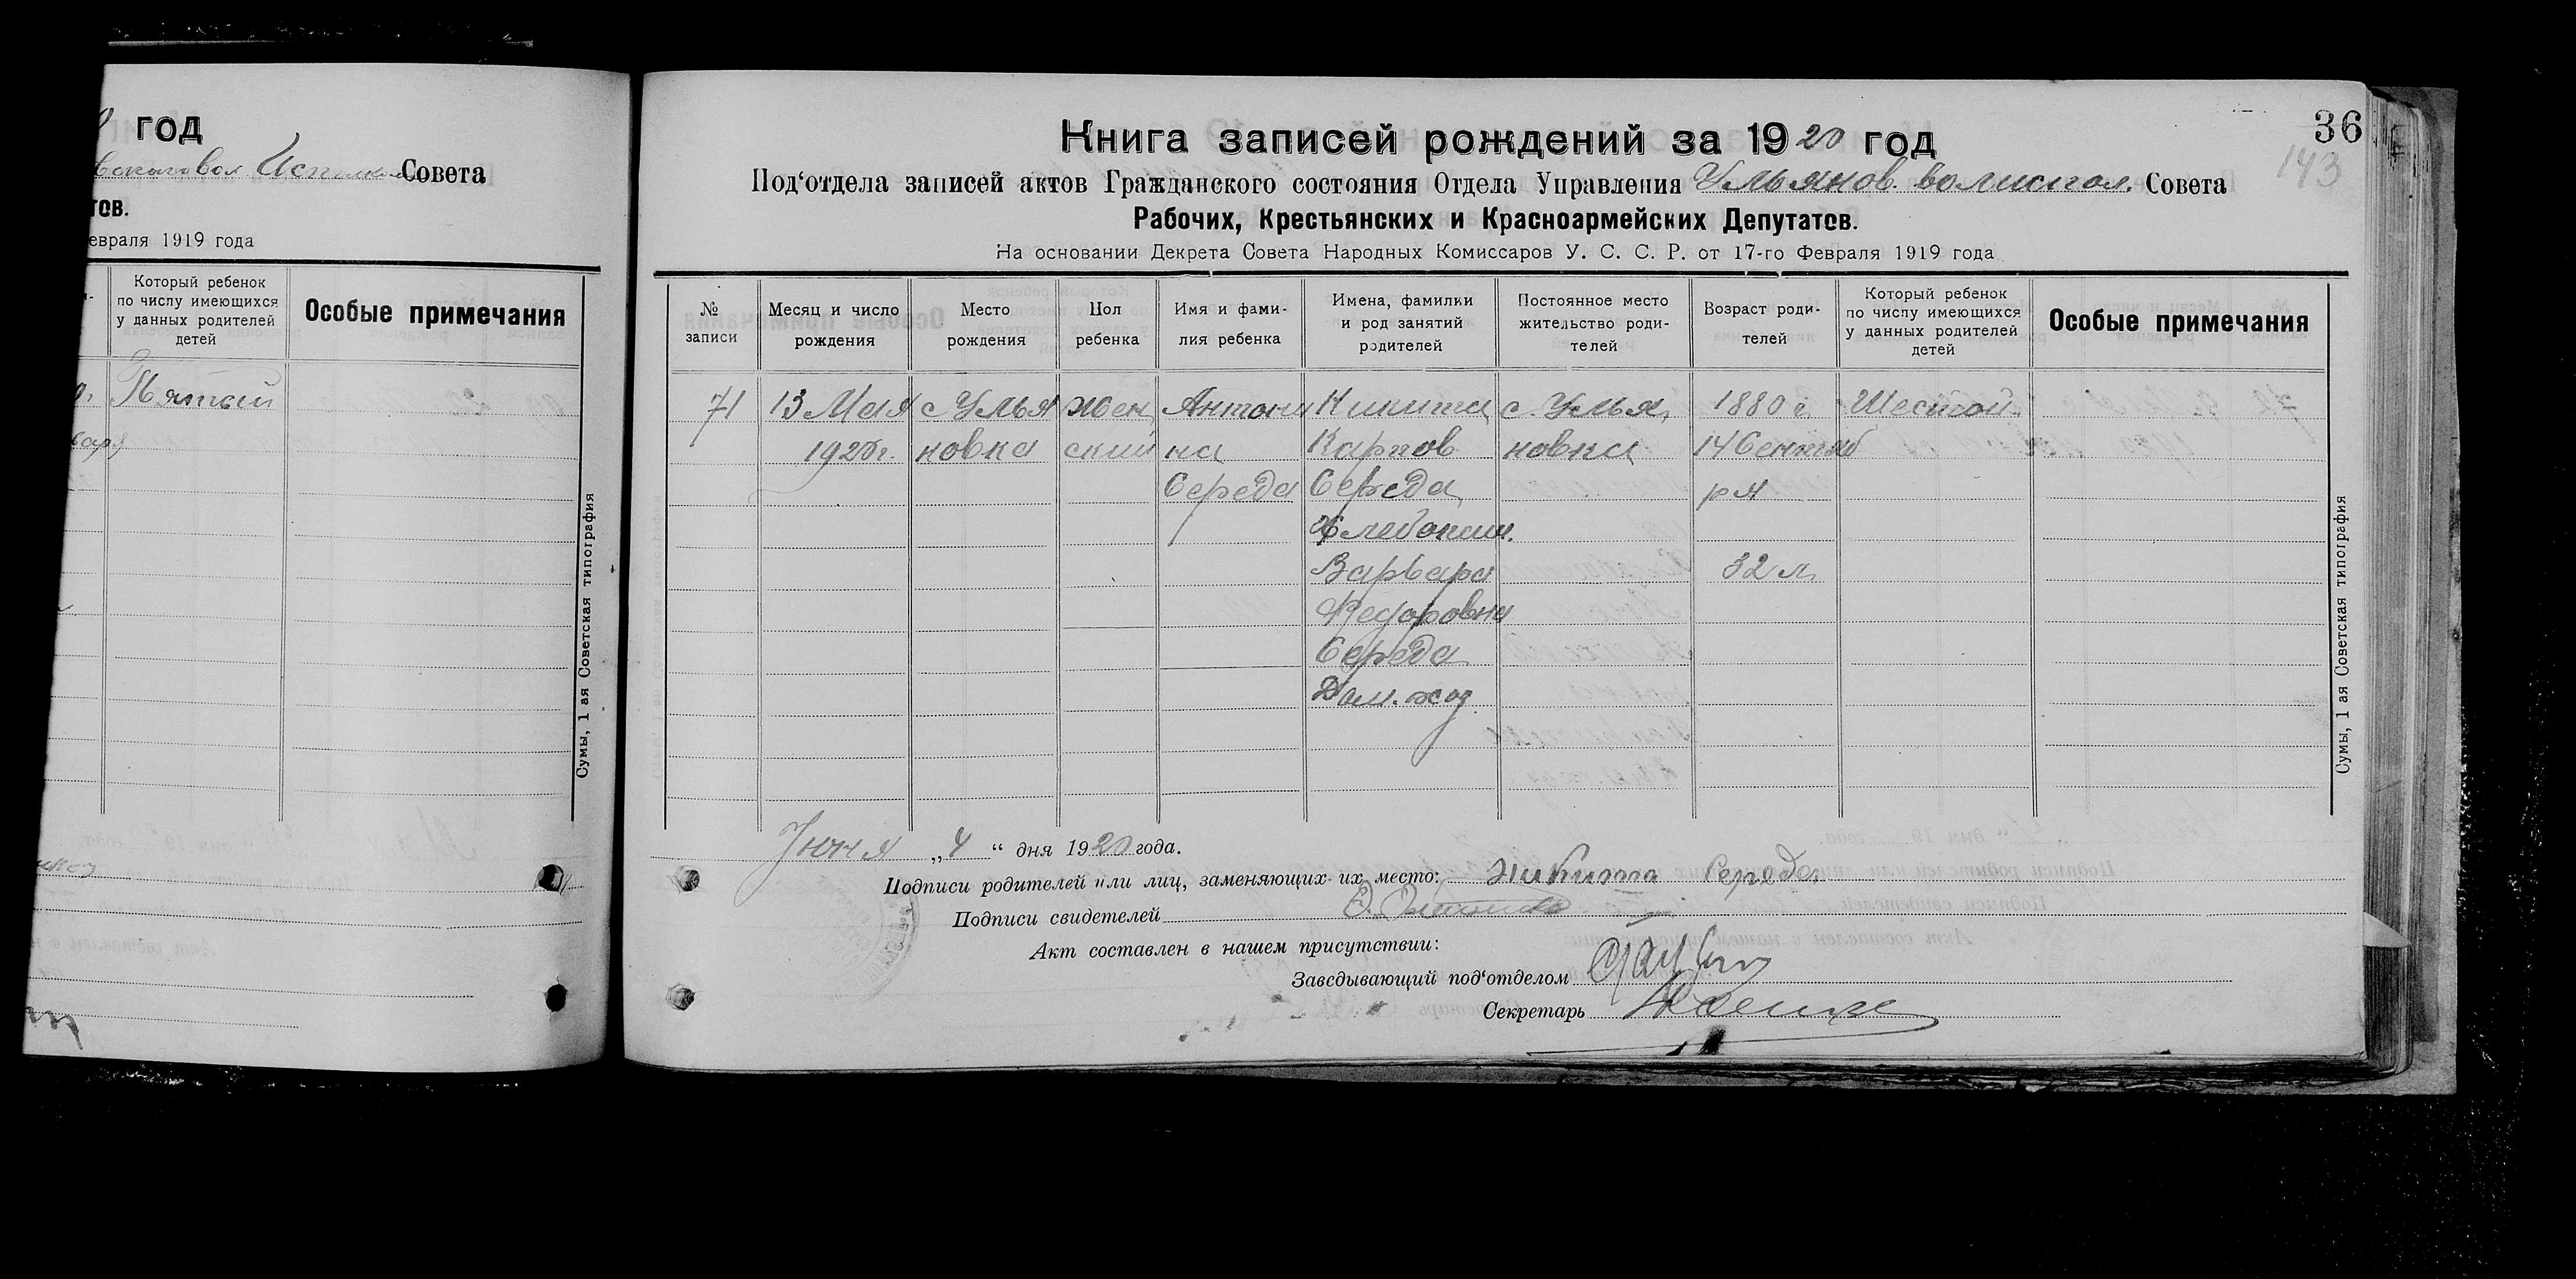 год
Совета
тов.
евраля 1919 года
Который ребенок
по числу имеющихся
у данных родителей
детей
Особые примечания
Пятый
Сумы, 1 ая Советская типография
36
143
Книга записей рождений за 1920 год
Под‘отдела записей актов Гражданского состояния Отдела Управления Ульянов. волиспол. Совета
Рабочих, Крестьянских и Красноармейских Депутатов.
На основании Декрета Совета Народных Комиссаров У. С. С. Р. от 17-го Февраля 1919 года
№
записи
Месяц и число
рождения
Место
рождения
Пол
ребенка
Имя и фами-
лия ребенка
Имена, фамилии
и род занятий
родителей
Постоянное место
жительство роди-
телей
Возраст роди-
телей
Который ребенок
по числу имеющихся
у данных родителей
детей
Особые примечания
71
13 Мая
1920 г.
с Улья
новка
жен
ский
Антони
на
Середа
Никита
Карпов
Середа
Хлебопаш.
Варвара
Федоровна
Середа
Дом. хоз
с. Улья,
новка
1880 г.
14 Сентяб
ря
32 л.
Шестой
Сумы, 1 ая Советская типография
Июня „4“ дня 1920 года.
Подписи родителей или лиц, заменяющих их место: Никита Середа
Подписи свидетелей
Акт составлен в нашем присутствии:
Заведывающий под‘отделом
Секретарь